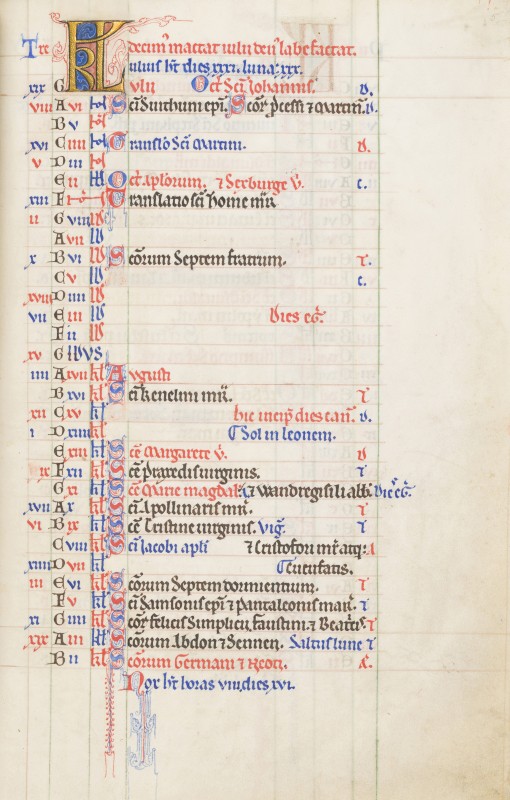 Tre decimus mactat iulii denus labefactat.
KL Iulius ht dies xxxi. luna. xxx.
xix G Iulii Oct Sci Iohannis. D.
viii A vi N Sci Suithuni epi. Scor Pcessi 7 Martini. D.
B v N
xvi C iiii N Translatio Sci Martini. D.
v D iii N
E ii N Oct Aplorum. 7 Sexburge v. c.
xiii F N Translatio sci Thome mr
ii G viii Id
A vii Id
x B vi Id Scorum Septem fratrum. T.
C v Id c.
xviii D iiii Id
vii E iii Id Dies eg.
F ii Id
xv G IDVS
iiii A xvii kl Augusti
B xvi kl Sci Kenelmi mr. T
xii C xv kl hic incip dies can. D.
i D xiiii kl Sol in leonem.
E xiii kl Sce Margarete v. D
ix F xii kl Sce Praxedis uirginis. T
G xi kl Sce Marie magdal. 7 Wandregisili abb. Dies eg.
xvii A x kl Sci Apollinaris mr. T
vi B ix kl Sce Cristine uirginis. Vig. T
C viii kl Sci Iacobi apli 7 Cristofori mr atq;
xiiii D vii kl Cucufatis.
iii E vi kl Scorum Septem dormientium. T
F v kl Sci Samsonis epi 7 Pantaleonis mar. T
xi G iiii kl Scor felicis Simplicii, faustini 7 Beatricis T
xix A iii kl Scorum Abdon 7 Sennen. Saltus lune T
B ii kl Scorum Germani 7 Neoti.
Nox ht horas viii, dies xvi.